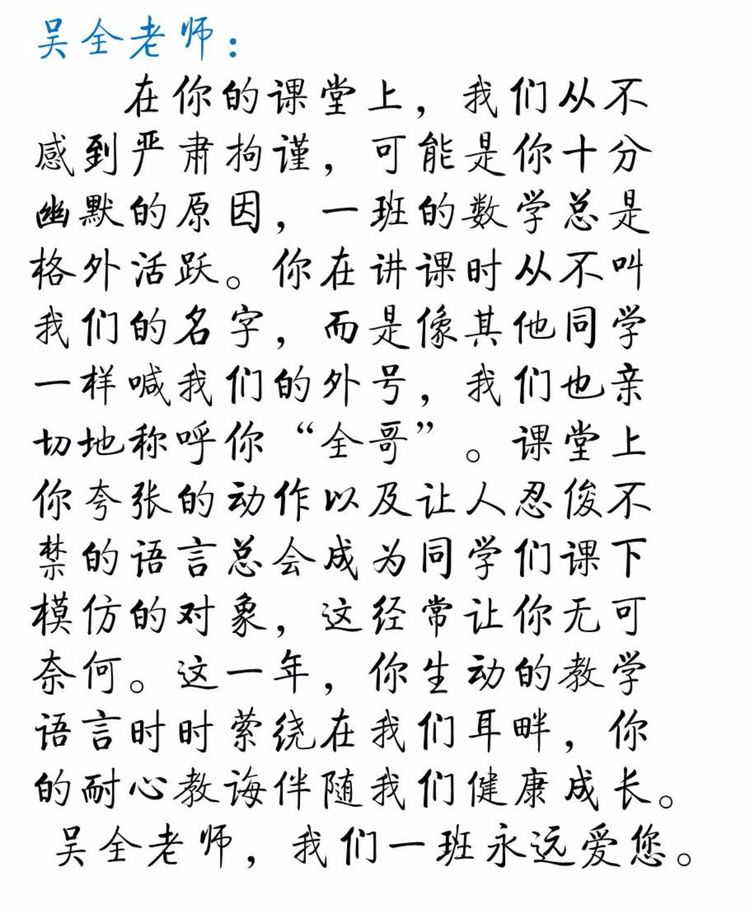 吴全老师：
在你的课堂上，我们从不
感到严肃拘谨，可能是你十分
幽默的原因，一班的数学总是
格外活跃。你在讲课时从不叫
我们的名字，而是像其他同学
一样喊我们的外号，我们也亲
切地称呼你“全哥”。课堂上
你夸张的动作以及让人忍俊不
禁的语言总会成为同学们课下
模仿的对象，这经常让你无可
奈何。这一年，你生动的教学
语言时时萦绕在我们耳畔，你
的耐心教诲伴随我们健康成长。
吴全老师，我们一班永远爱您。